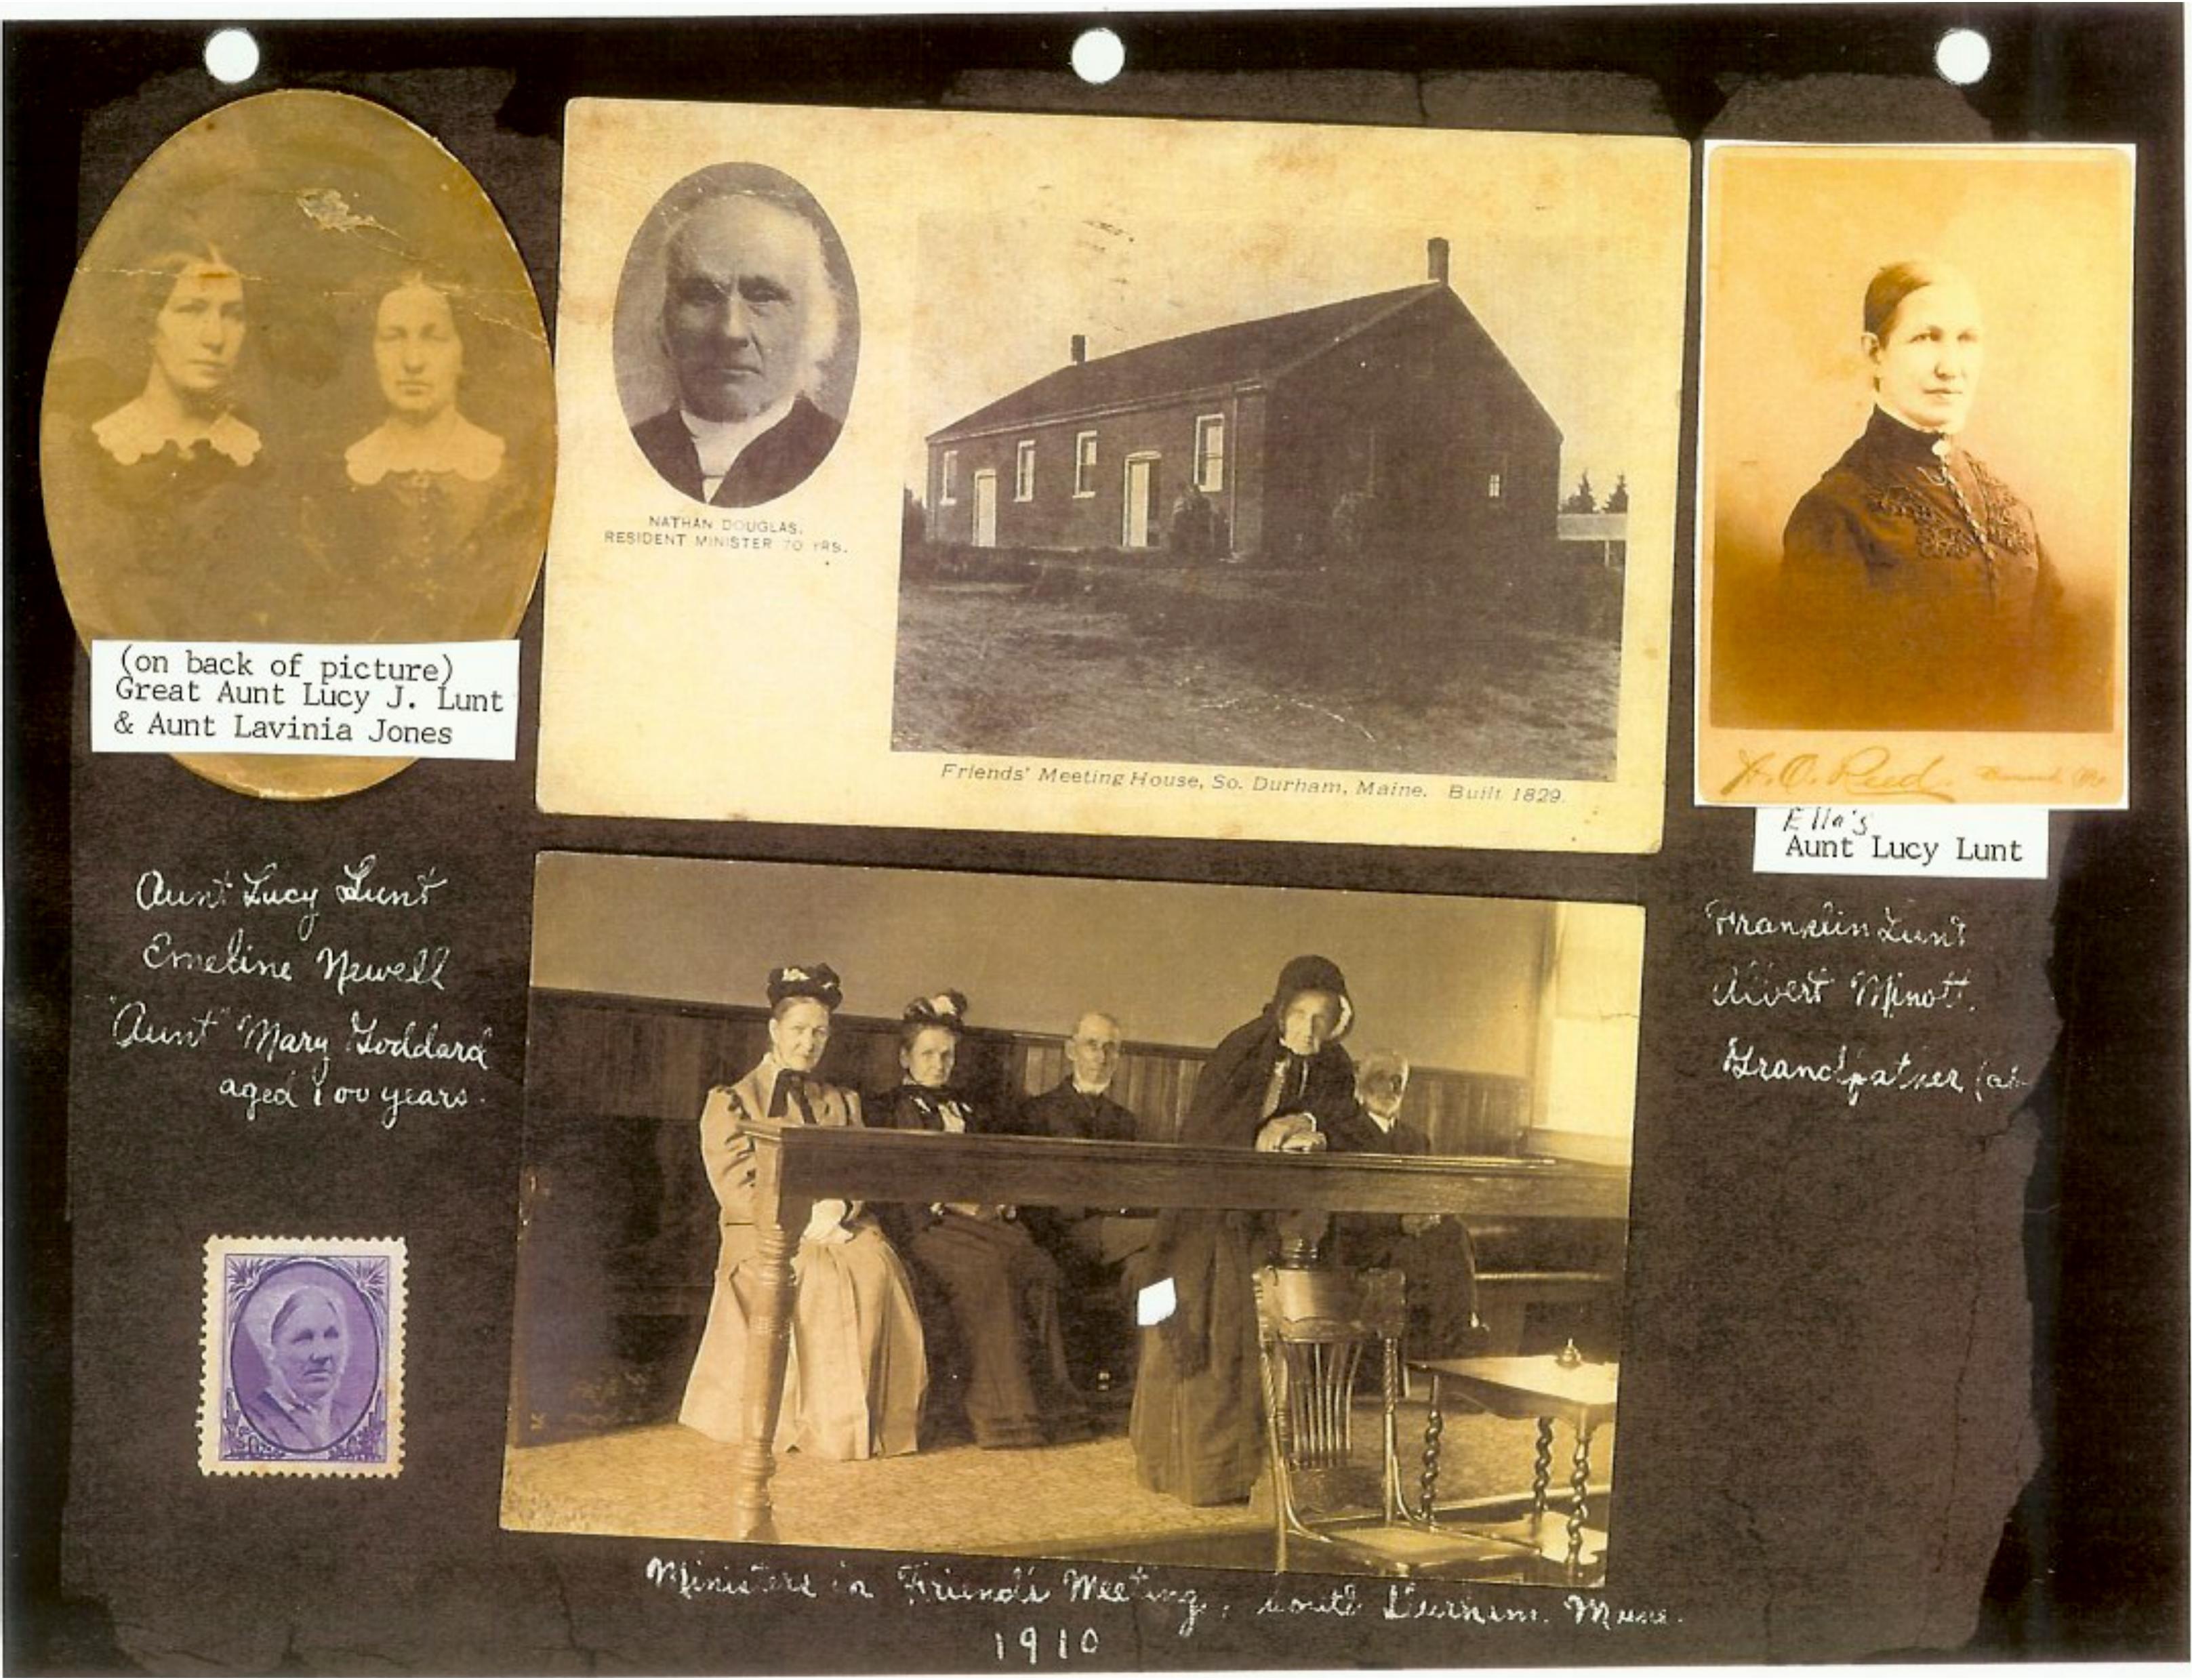 (on back of picture)
Great Aunt Lucy J. Lunt
& Aunt Lavinia Jones
NATHAN DOUGLAS.
RESIDENT MINISTER 70 YRS.
Friends' Meeting House, So. Durham, Maine. Built 1829.
H. O. Reed.
Ella's
Aunt Lucy Lunt
Aunt Lucy Lunt
Emeline Newell
"Aunt" Mary Goddard
aged 100 years.
Franklin Lunt
Albert Minott.
Grandfather
Ministers in Friends Meeting, South Durham. Maine.
1910